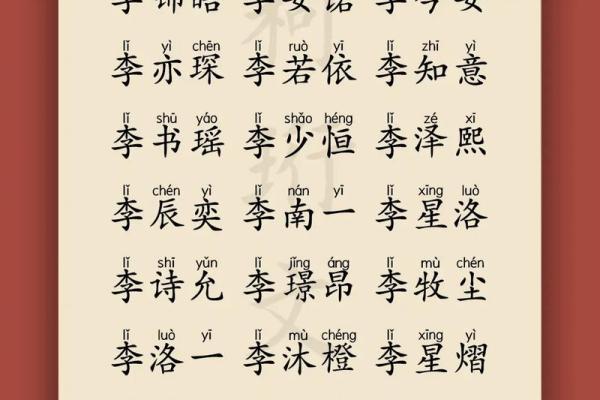 lǐ yì chēn lǐ ruò yī lǐ zhī yì
李亦琛 李若依 李知意
lǐ shū yáo lǐ shǎo héng lǐ zé xī
李书瑶 李少恒 李泽熙
lǐ chén yì lǐ nán yī lǐ xīng luò
李辰奕 李南一 李星洛
lǐ shī yǔn lǐ jǐng áng lǐ mù chén
李诗允 李璟昂 李牧尘
lǐ luò yī lǐ mù chéng lǐ xīng yì
李洛一 李沐橙 李星熠